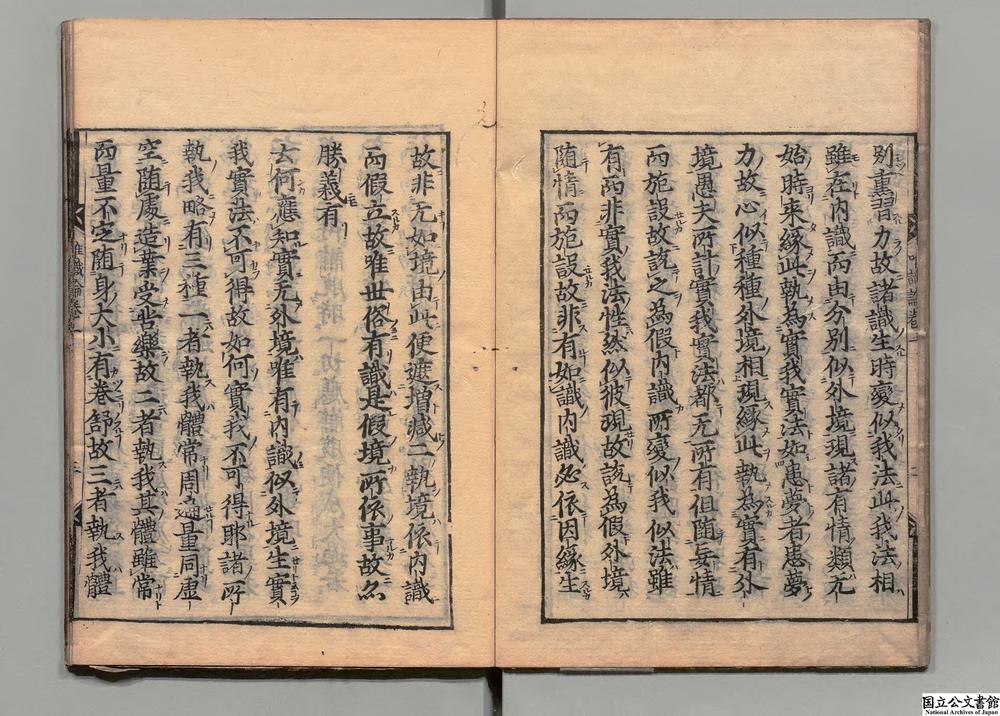 別熏習力故諸識生時變似我法此我法相
雖在内識而由分別似外境現諸有情類无
始時來緣此執為實我實法如患夢者患夢
力故心似種種外境相現緣此執為實有外
境愚夫所計實我實法都无所有但随妄情
而施設故說之為假内識所變似我似法雖
有而非實我法性然似彼現故說為假外境
随情而施設故非有如識内識必依因緣生
故非无如境由此便遮増减二執境依内識
而假立故唯世俗有識是假境所依事故亦
勝義有
云何應知實无外境唯有内識似外境生實
我實法不可得故如何實我不可得耶諸所
執我略有三種一者執我體常周遍量同虚
空随處造業受苦樂故二者執我其體雖常
而量不定随身大小有卷舒故三者執我體
唯識論卷一
国立公文書館
National Archives of Japan